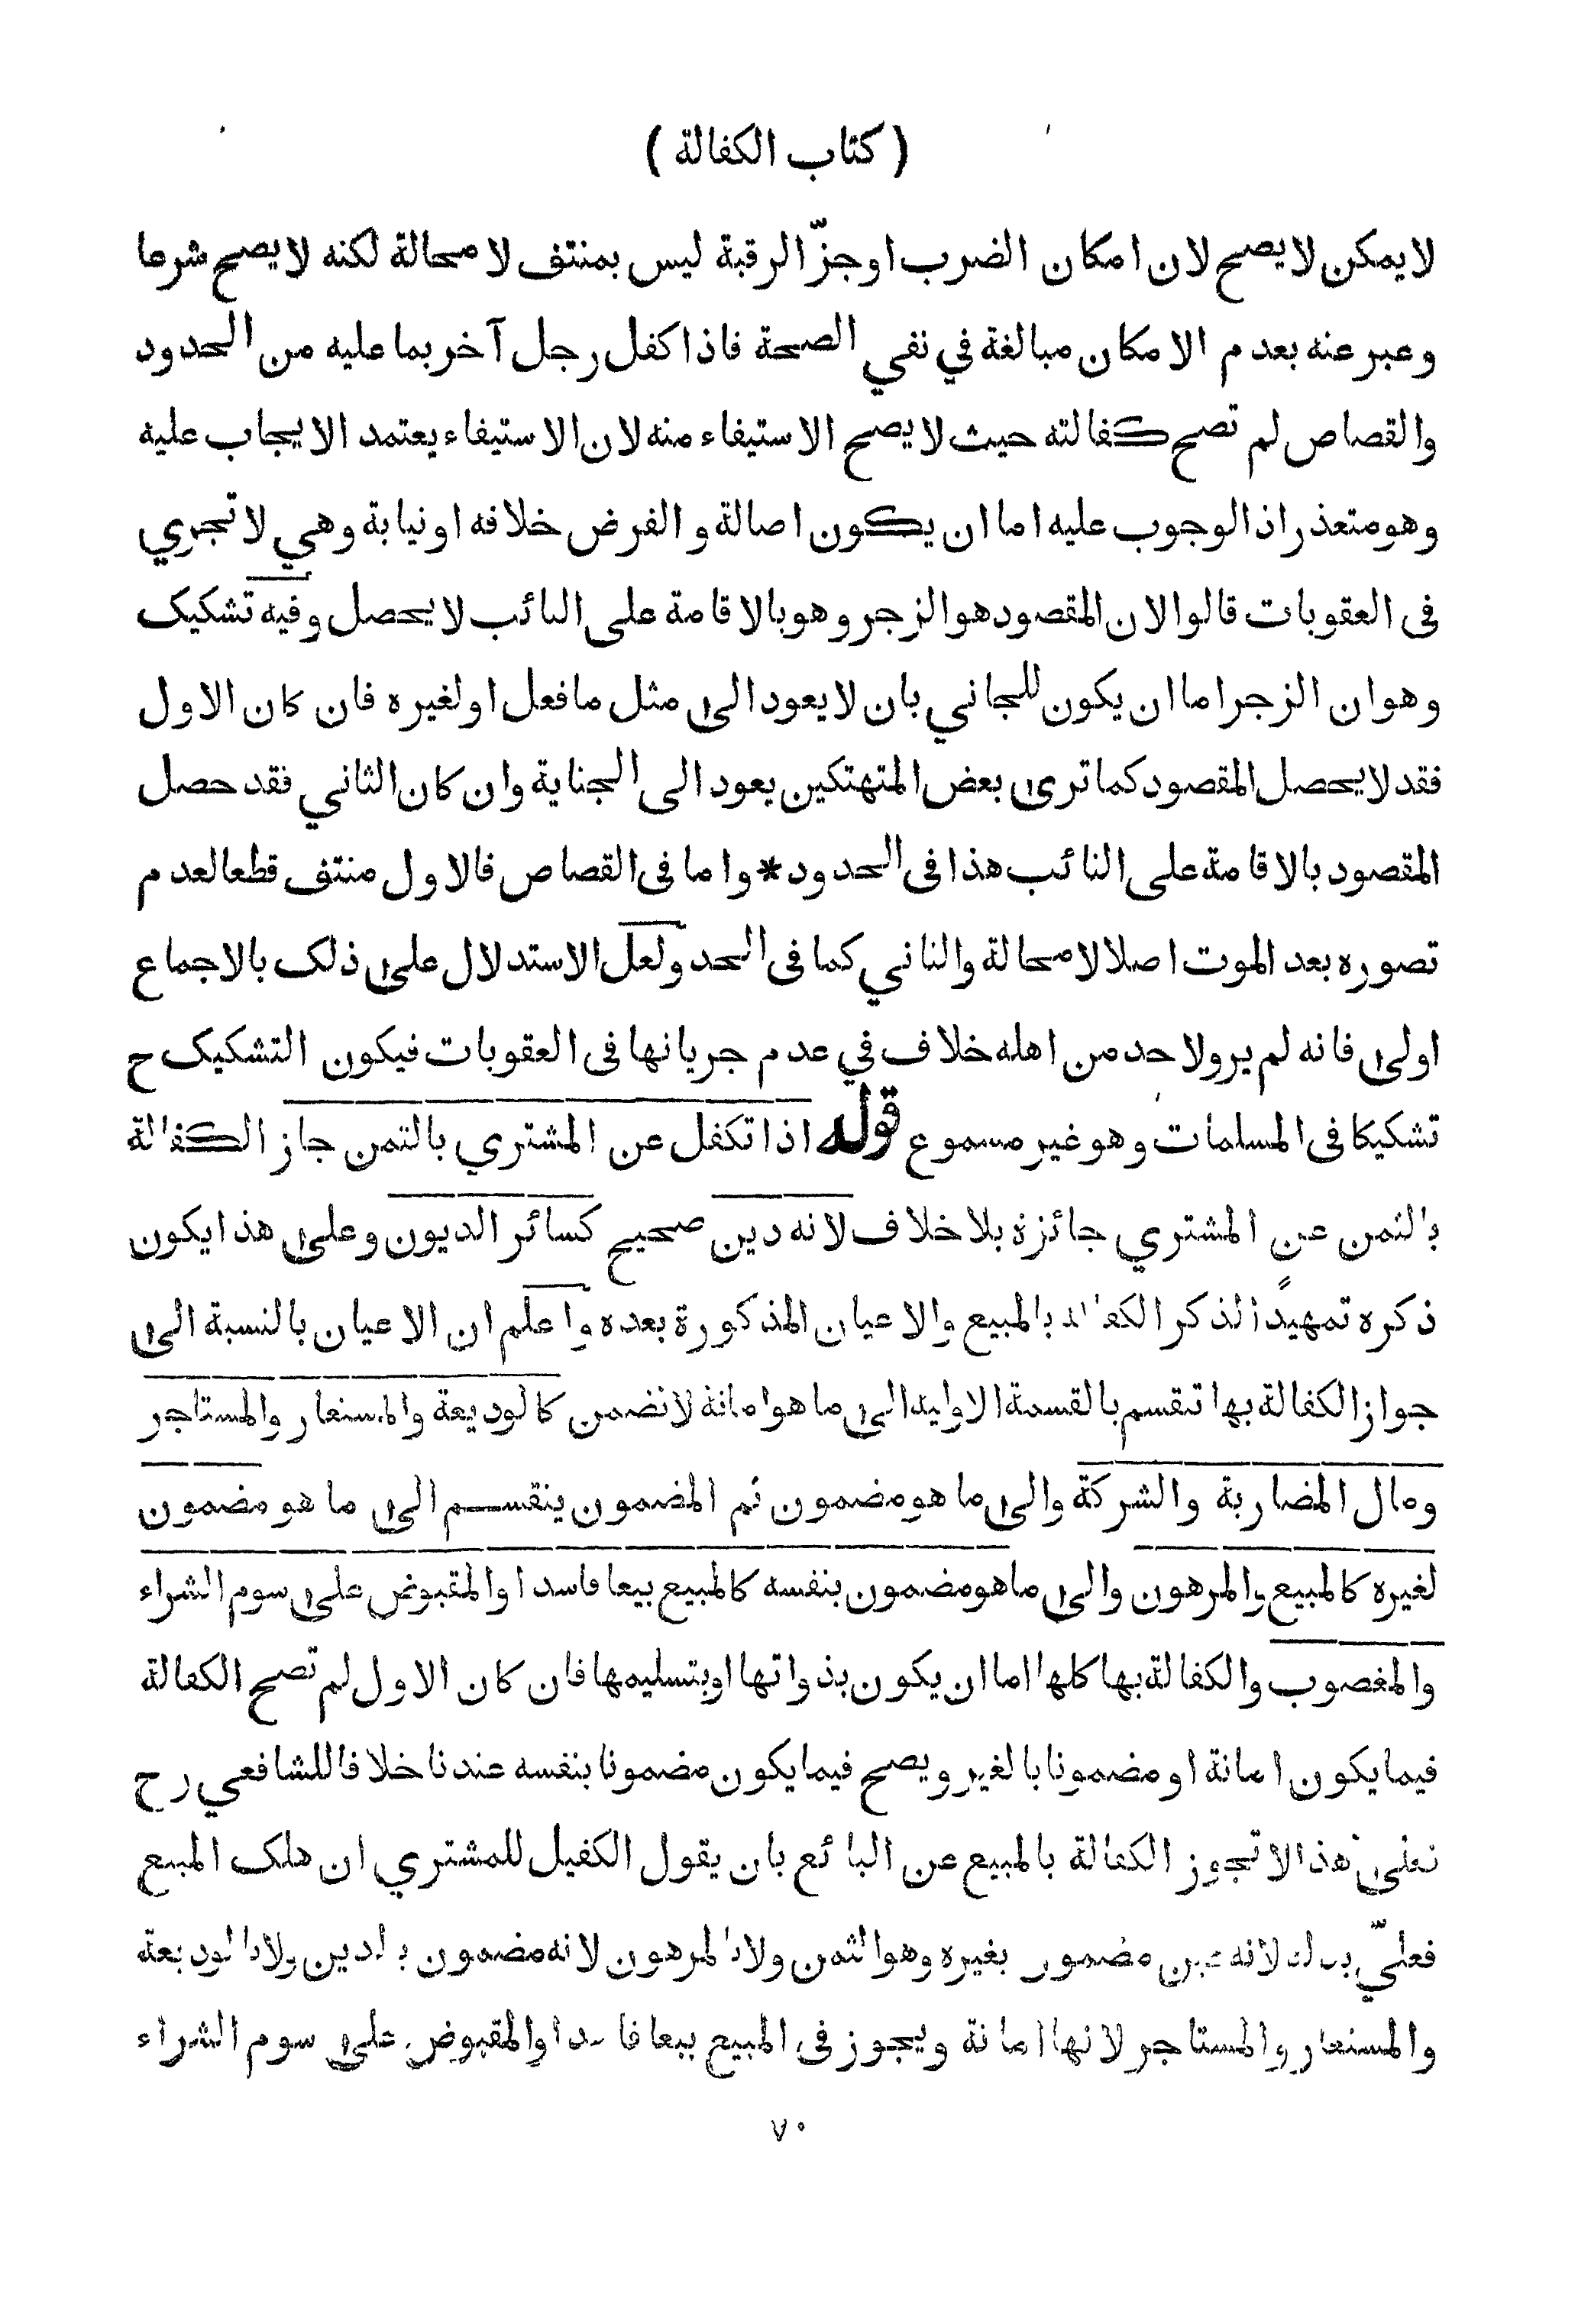 ( كتاب الكفالة )
لايمكن لايصح لان امكان الضرب اوجزّ الرقبة ليس بمنتف لا محالة لكنه لا يصح شرعا
وعبر عنه بعدم الامكان مبالغة في نفي الصحة فاذا كفل رجل آخر بما عليه من الحدود
والقصاص لم تصح كفالته حيث لا يصح الاستيفاء منه لان الاستيفاء يعتمد الايجاب عليه
وهو متعذر اذ الوجوب عليه اما ان يكون اصالة و الفرض خلافه او نيابة وهي لا تجري
فى العقوبات قالوا لان المقصود هو الزجر وهو بالاقامة على النائب لا يحصل وفيه تشكيك
وهو ان الزجر اما ان يكون للجاني بان لا يعود الى مثل ما فعل او لغيره فان كان الاول
فقد لا يحصل المقصود كما ترى بعض المتهتكين يعود الى الجناية وان كان الثاني فقد حصل
المقصود بالاقامة على النائب هذا فى الحدود * واما فى القصاص فالاول منتف قطعا لعدم
تصوره بعد الموت اصلا لا محالة والثاني كما فى الحد ولعل الاستدلال على ذلك بالاجماع
اولى فانه لم يرو لاحد من اهله خلاف في عدم جريانها فى العقوبات فيكون التشكيك ح
تشكيكا فى المسلمات وهو غير مسموع قوله اذا تكفل عن المشتري بالثمن جاز الكفالة
بالثمن عن المشتري جائزة بلا خلاف لانه دين صحيح كسائر الديون وعلى هذا يكون
ذكره تمهيدًا لذكر الكفالة بالمبيع والاعيان المذكورة بعده واعلم ان الاعيان بالنسبة الى
جواز الكفالة بها تنقسم بالقسمة الاولية الى ما هو امانة لا تضمن كالوديعة والمستعار والمستاجر
ومال المضاربة والشركة والى ما هو مضمون ثم المضمون ينقسم الى ما هو مضمون
لغيره كالمبيع والمرهون والى ما هو مضمون بنفسه كالمبيع بيعا فاسدا والمقبوض على سوم الشراء
والمغصوب والكفالة بها كلها اما ان يكون بذواتها او بتسليمها فان كان الاول لم تصح الكفالة
فيما يكون امانة او مضمونا بالغير ويصح فيما يكون مضمونا بنفسه عندنا خلافا للشافعي رح
فعلى هذا لا تجوز الكفالة بالمبيع عن البائع بان يقول الكفيل للمشتري ان هلك المبيع
فعليّ بدله لانه عين مضمون بغيره وهو الثمن ولا بالمرهون لانه مضمون بالدين ولا بالوديعة
والمستعار والمستاجر لانها امانة ويجوز فى المبيع بيعا فاسدا والمقبوض على سوم الشراء
٧٠